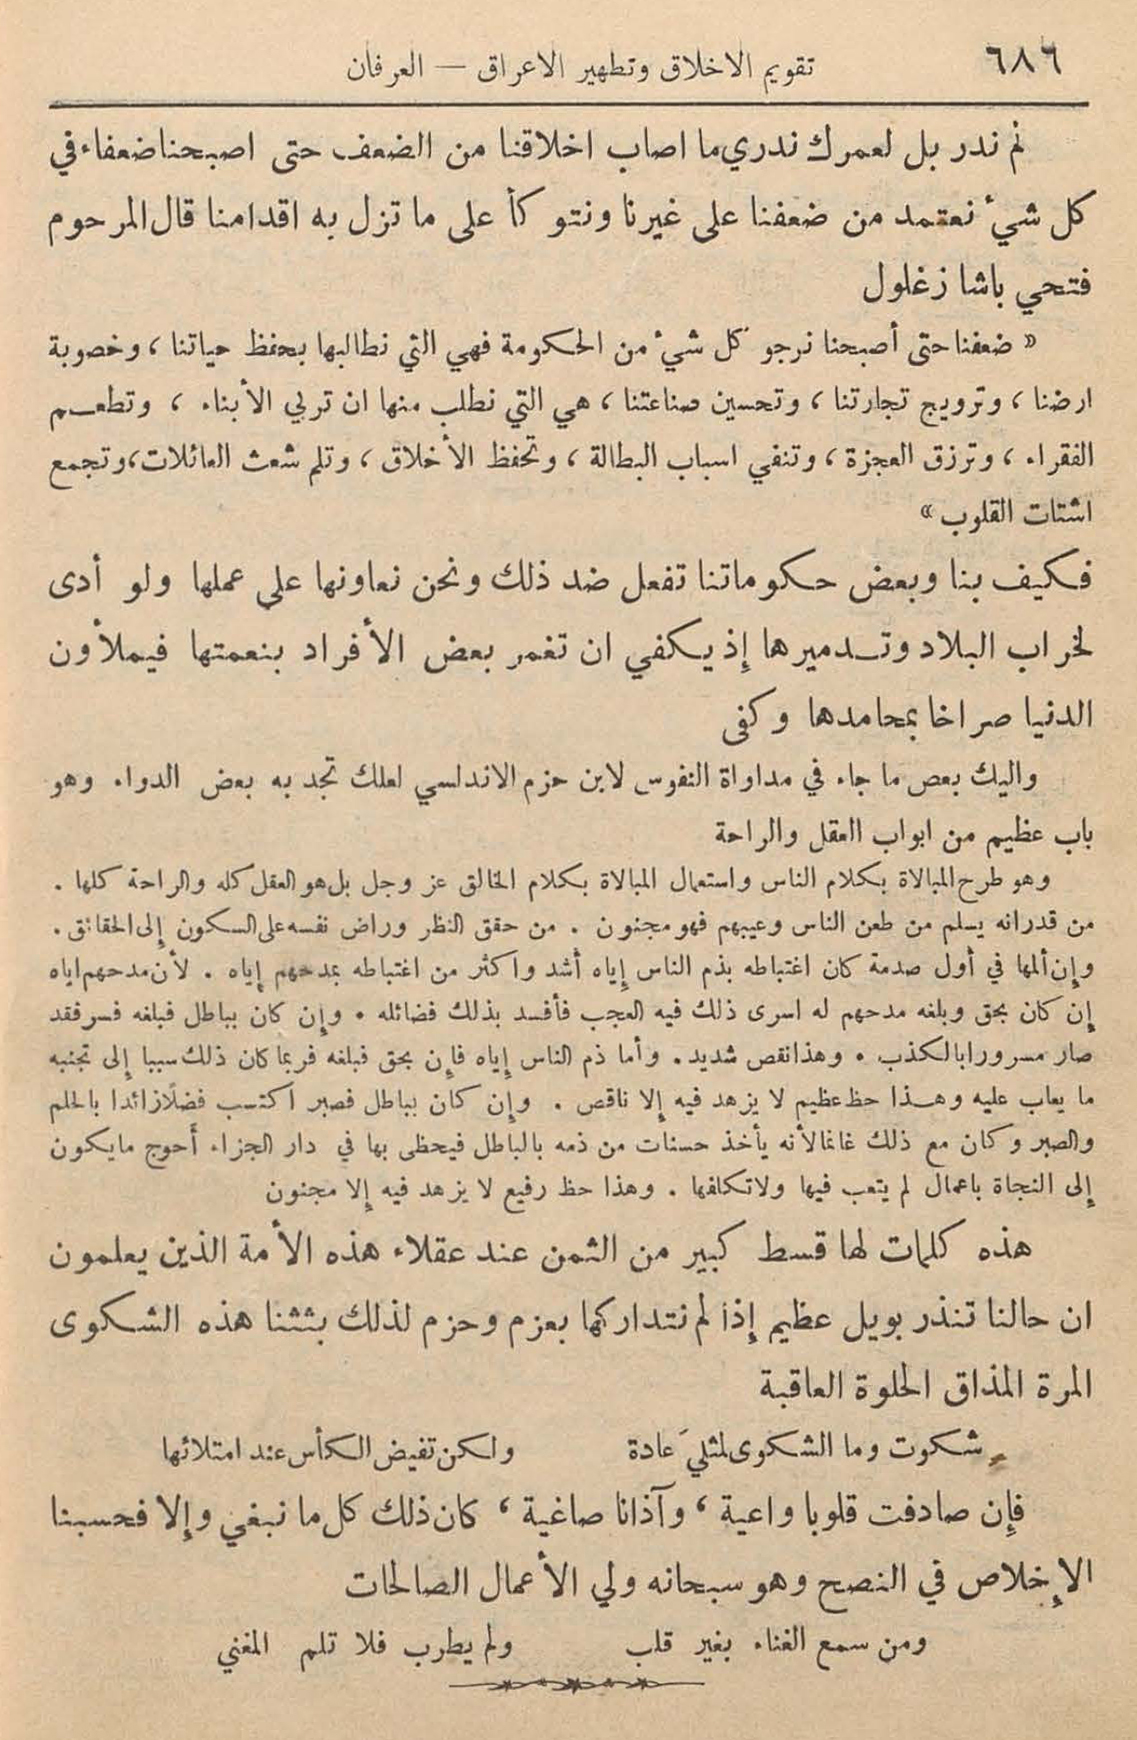 ٦٨٦
تقويم الاخلاق وتطهير الاعراق — العرفان
لم ندر بل لعمرك ندري ما اصاب اخلاقنا من الضعف حتى اصبحنا ضعفاء في
كل شيء نعتمد من ضعفنا على غيرنا ونتوكأ على ما تزل به اقدامنا قال المرحوم
فتحي باشا زغلول
« ضعفنا حتى أصبحنا نرجو كل شيء من الحكومة فهي التي نطالبها بحفظ حياتنا ، وخصوبة
ارضنا ، وترويج تجارتنا ، وتحسين صناعتنا ، هي التي نطلب منها ان تربي الأبناء ، وتطعم
الفقراء ، وترزق العجزة ، وتنفي اسباب البطالة ، وتحفظ الأخلاق ، وتلم شعث العائلات، وتجمع
اشتات القلوب »
فكيف بنا وبعض حكوماتنا تفعل ضد ذلك ونحن نعاونها على عملها ولو أدى
لخراب البلاد وتدميرها إذ يكفي ان تغمر بعض الأفراد بنعمتها فيملأون
الدنيا صراخا بمحامدها وكفى
واليك بعص ما جاء في مداواة النفوس لابن حزم الاندلسي لعلك تجد به بعض الدواء وهو
باب عظيم من ابواب العقل والراحة
وهو طرح المبالاة بكلام الناس واستعمال المبالاة بكلام الخالق عز وجل بل هو العقل كله والراحة كلها .
من قدر انه يسلم من طعن الناس وعيبهم فهو مجنون . من حقق النظر وراض نفسه على السكون إلى الحقائق .
وإن ألمها في أول صدمة كان اغتباطه بذم الناس إياه أشد واكثر من اغتباطه بمدحهم إياه . لأن مدحهم اياه
إن كان بحق وبلغه مدحهم له اسرى ذلك فيه العجب فأفسد بذلك فضائله . وإن كان بباطل فبلغه فسر فقد
صار مسرورا بالكذب . وهذا نقص شديد . وأما ذم الناس إياه فإن بحق فبلغه فربما كان ذلك سببا إلى تجنبه
ما يعاب عليه وهذا حظ عظيم لا يزهد فيه إلا ناقص . وإن كان بباطل فصبر اكتسب فضلًا زائدا بالحلم
والصبر وكان مع ذلك غانما لأنه يأخذ حسنات من ذمه بالباطل فيحظى بها في دار الجزاء أحوج مايكون
إلى النجاة باعمال لم يتعب فيها ولا تكلفها . وهذا حظ رفيع لا يزهد فيه إلا مجنون
هذه كلمات لها قسط كبير من الثمن عند عقلاء هذه الأمة الذين يعلمون
ان حالنا تنذر بويل عظيم إذا لم نتداركها بعزم وحزم لذلك بثثنا هذه الشكوى
المرة المذاق الحلوة العاقبة
شكوت وما الشكوى لمثلي عادة ولكن تفيض الكأس عند امتلائها
فإن صادفت قلوبا واعية ، وآذانا صاغية ، كان ذلك كل ما نبغي وإلا فحسبنا
الإخلاص في النصح وهو سبحانه ولي الأعمال الصالحات
ومن سمع الغناء بغير قلب ولم يطرب فلا تلم المغني